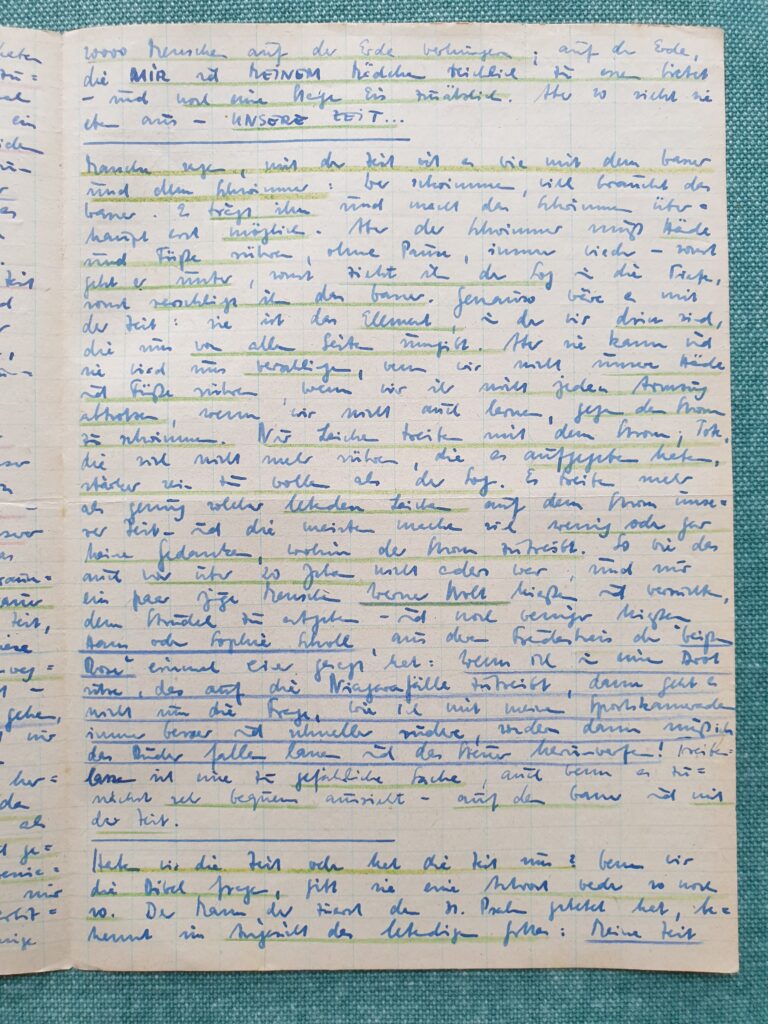 heten
ein
as
Zeit
-
das
Zeit,
-
gehen,
mir
her=
als
ge=
mir
20000 Menschen auf der Erde verhungern; auf der Erde,
die MIR und MEINEM Mädchen reichlich zu essen bietet
- und noch eine Menge Eis zusätzlich. Aber so sieht sie
eben aus - UNSERE ZEIT...
Manche sagen, mit der Zeit ist es wie mit dem Wasser
und dem Schwimmer: Wer schwimmen will braucht das
Wasser. Es trägt ihn und macht das Schwimmen über=
haupt erst möglich. Aber der Schwimmer muß Hände
und Füße rühren, ohne Pause, immer wieder - sonst
geht er unter, sonst zieht ihn der Sog in die Tiefe,
sonst verschlingt ihn das Wasser. Genauso wäre es mit
der Zeit: sie ist das Element, in der wir drin sind,
die uns von allen Seiten umgibt. Aber sie kann und
sie wird uns verschlingen, wenn wir nicht unsere Hände
und Füße rühren, wenn wir ihr nicht jeden Atemzug
abtrotzen, wenn wir nicht auch lernen, gegen den Strom
zu schwimmen. Nur Leichen treiben mit dem Strom; Tote,
die sich nicht mehr rühren, die es aufgegeben haben,
stärker sein zu wollen als der Sog. Es treiben mehr
als genug solcher lebenden Leichen auf dem Strom unse=
rer Zeit - und die meisten machen sich wenig oder gar
keine Gedanken, wohin der Strom zutreibt. So wie das
auch vor über 20 Jahren nicht anders war, und nur
ein paar junge Menschen hießen und versuchten,
dem Strudel zu entgehen - und noch weniger hießen
Hans oder Sophie Scholl, aus deren Freundeskreis der "Weißen
Rose" einmal einer gesagt hat: Wenn ich in einem Boot
sitze, das auf die Niagarafälle zutreibt, dann geht es
nicht um die Frage, wie ich mit meinen Sportskameraden
immer besser und schneller rudere, sondern dann muß ich
das Ruder fallen lassen und das Steuer herumwerfen! Treiben=
lassen ist eine zu gefährliche Sache, auch wenn es zu=
nächst sehr bequem aussieht - auf dem Wasser und mit
der Zeit.
Haben wir die Zeit oder hat die Zeit uns? Wenn wir
die Bibel fragen, gibt sie eine Antwort weder so noch
so. Der Mann, der zuerst den 31. Psalm gebetet hat, be=
kennt im Angesicht des lebendigen Gottes: Meine Zeit